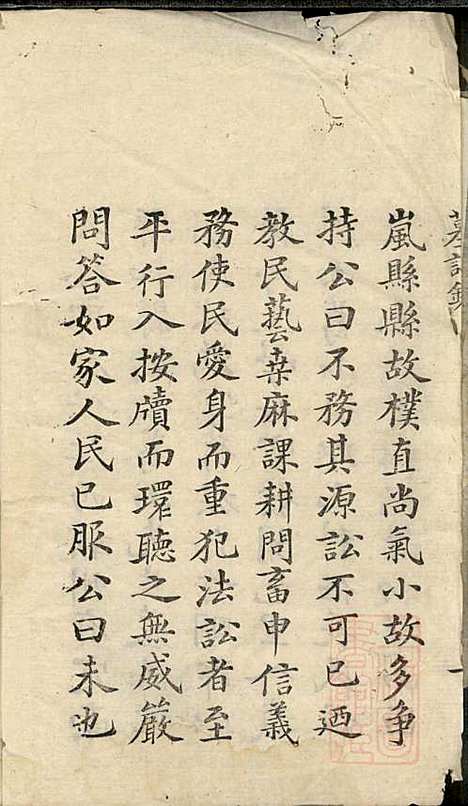 墓誌銘
嵐縣縣故樸直尚氣小故多争
持公曰不務其源訟不可已廼
教民藝桒麻課耕問畜申信義
務使民愛身而重犯法訟者至
平行入按牘而環聽之無威嚴
問答如家人民已服公曰未也